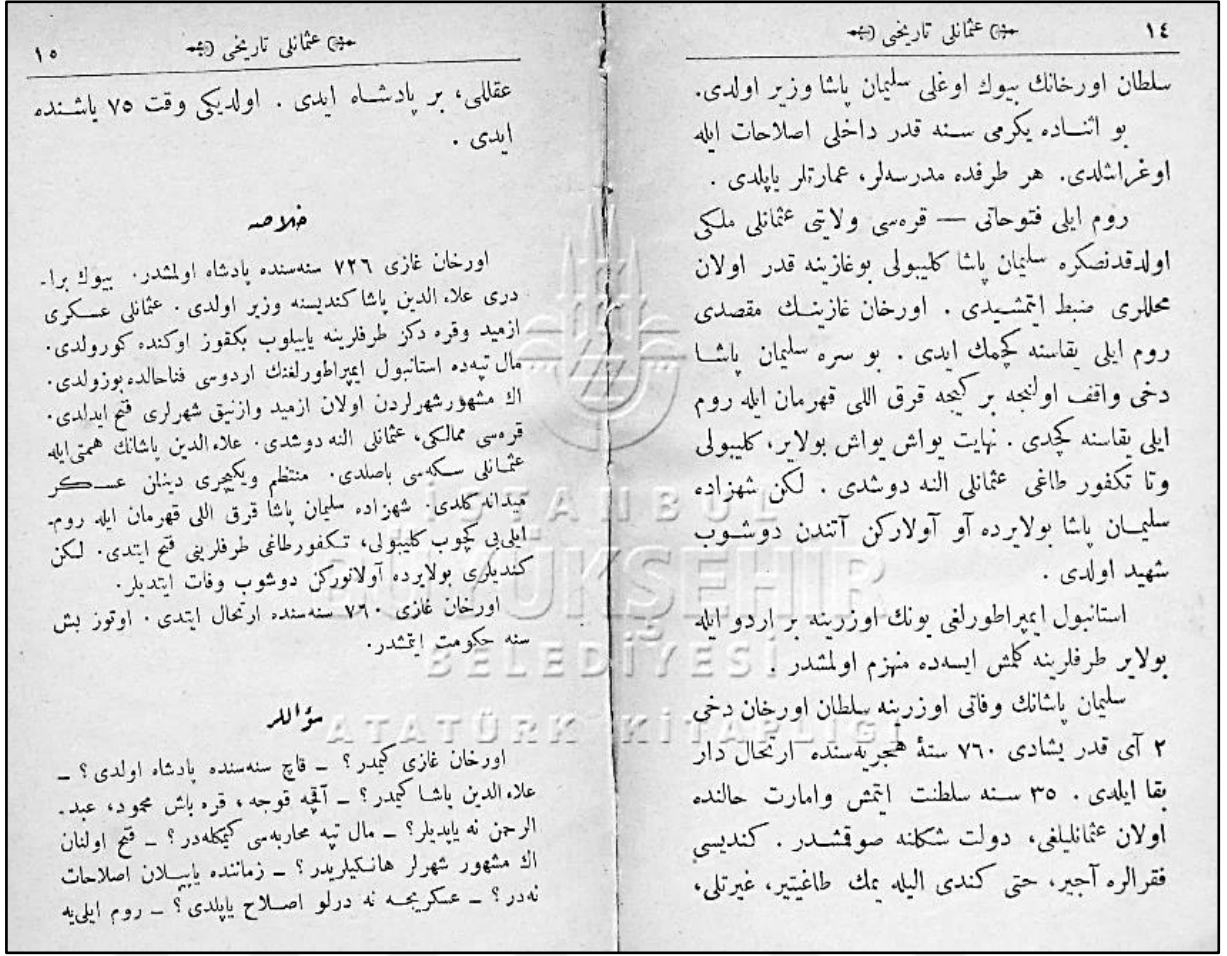 ١٤
عثمانلی تاریخی
سلطان اورخانك بیوك اوغلی سلیمان پاشا وزیر اولدی.
بو اثنـاده یکرمی سـنه قدر داخلی اصلاحات ایله
اوغراشلدی. هر طرفده مدرسه‌لر، عمارتلر یاپلدی .
روم ایلی فتوحاتی — قره‌سی ولایتی عثمانلی ملکی
اولدقدنصکره سلیمان پاشا کلیبولی بوغازینه قدر اولان
محللری ضبط ایتمشـیدی . اورخان غازینـك مقصدی
روم ایلی یقاسنه کچمك ایدی . بو سره سلیمان پاشـا
دخی واقف اولنجه بر کیجه قرق اللی قهرمان ایله روم
ایلی یقاسنه کچدی . نهایت یواش یواش بولایر، کلیبولی
وتا تکفور طاغی عثمانلی النه دوشدی . لکن شهزاده
سلیمـان پاشا بولایرده آو آولارکن آتندن دوشـوب
شهید اولدی .
استانبول ایمپراطورلغی بونك اوزرینه بر اردو ایله
بولایر طرفلرینه کلمش ایسه‌ده منهزم اولمشدر .
سلیمان پاشانك وفاتی اوزرینه سلطان اورخان دخی
٢ آی قدر یشادی ٧٦٠ سنۀ هجریه‌سنده ارتحال دار
بقا ایلدی . ٣٥ سـنه سلطنت ایتمش وامارت حالنده
اولان عثمانلیلغی، دولت شکلنه صوقمشـدر . کندیسی
فقرالره آجیر، حتی کندی الیله یمك طاغیتیر، غیرتلی،
١٥
عثمانلی تاریخی
عقللی، بر پادشـاه ایدی . اولدیکی وقت ٧٥ یاشـنده
ایدی .
خلاصه
اورخان غازی ٧٢٦ سنه‌سنده پادشاه اولمشدر. بیوك برا-
دری علاءالدین پاشا کندیسنه وزیر اولدی . عثمانلی عسـکری
ازمید وقره دکز طرفلرینه یاییلوب بکقوز اوکنده کورولدی.
مال تپه‌ده استانبول ایمپراطورلغنك اردوسی فناحالده بوزولدی.
اك مشهورشهرلردن اولان ازمید وازنیق شهرلری فتح ایدلدی.
قره‌سی ممالکی، عثمانلی النه دوشدی. علاءالدین پاشانك همتی‌ایله
عثمـانلی سـکه‌سی باصلدی. منتظم ویکیچری دینلن عسـکر
میدانه کلدی. شهزاده سلیمان پاشا قرق اللی قهرمان ایله روم-
ایلی‌یی کچوب کلیبولی، تـکفورطاغی طرفلرینی فتح ایتدی. لکن
کندیلری بولایرده آولانورکن دوشوب وفات ایتدیلر.
اورخان غازی ٧٦٠ سنه‌سنده ارتحال ایتدی . اوتوز بش
سنه حکومت ایتمشدر.
سؤاللر
اورخان غازی کیمدر؟ ـ قاچ سنه‌سنده پادشاه اولدی؟ ـ
علاءالدین پاشـا کیمدر؟ ـ آقچه قوجه، قره باش محمود، عبد-
الرحمن نه یاپدیلر؟ ـ مال تپه محاربه‌سی کیمکله‌در؟ ـ فتح اولنان
اك مشهور شهرلر هانکیلریدر؟ ـ زماننده یاپیـلان اصلاحات
نه‌در؟ ـ عسکریجـه نه درلو اصـلاح یاپلدی؟ ـ روم ایلی‌یه
İSTANBUL
BÜYÜKŞEHİR
BELEDİYESİ
ATATÜRK KİTAPLIĞI